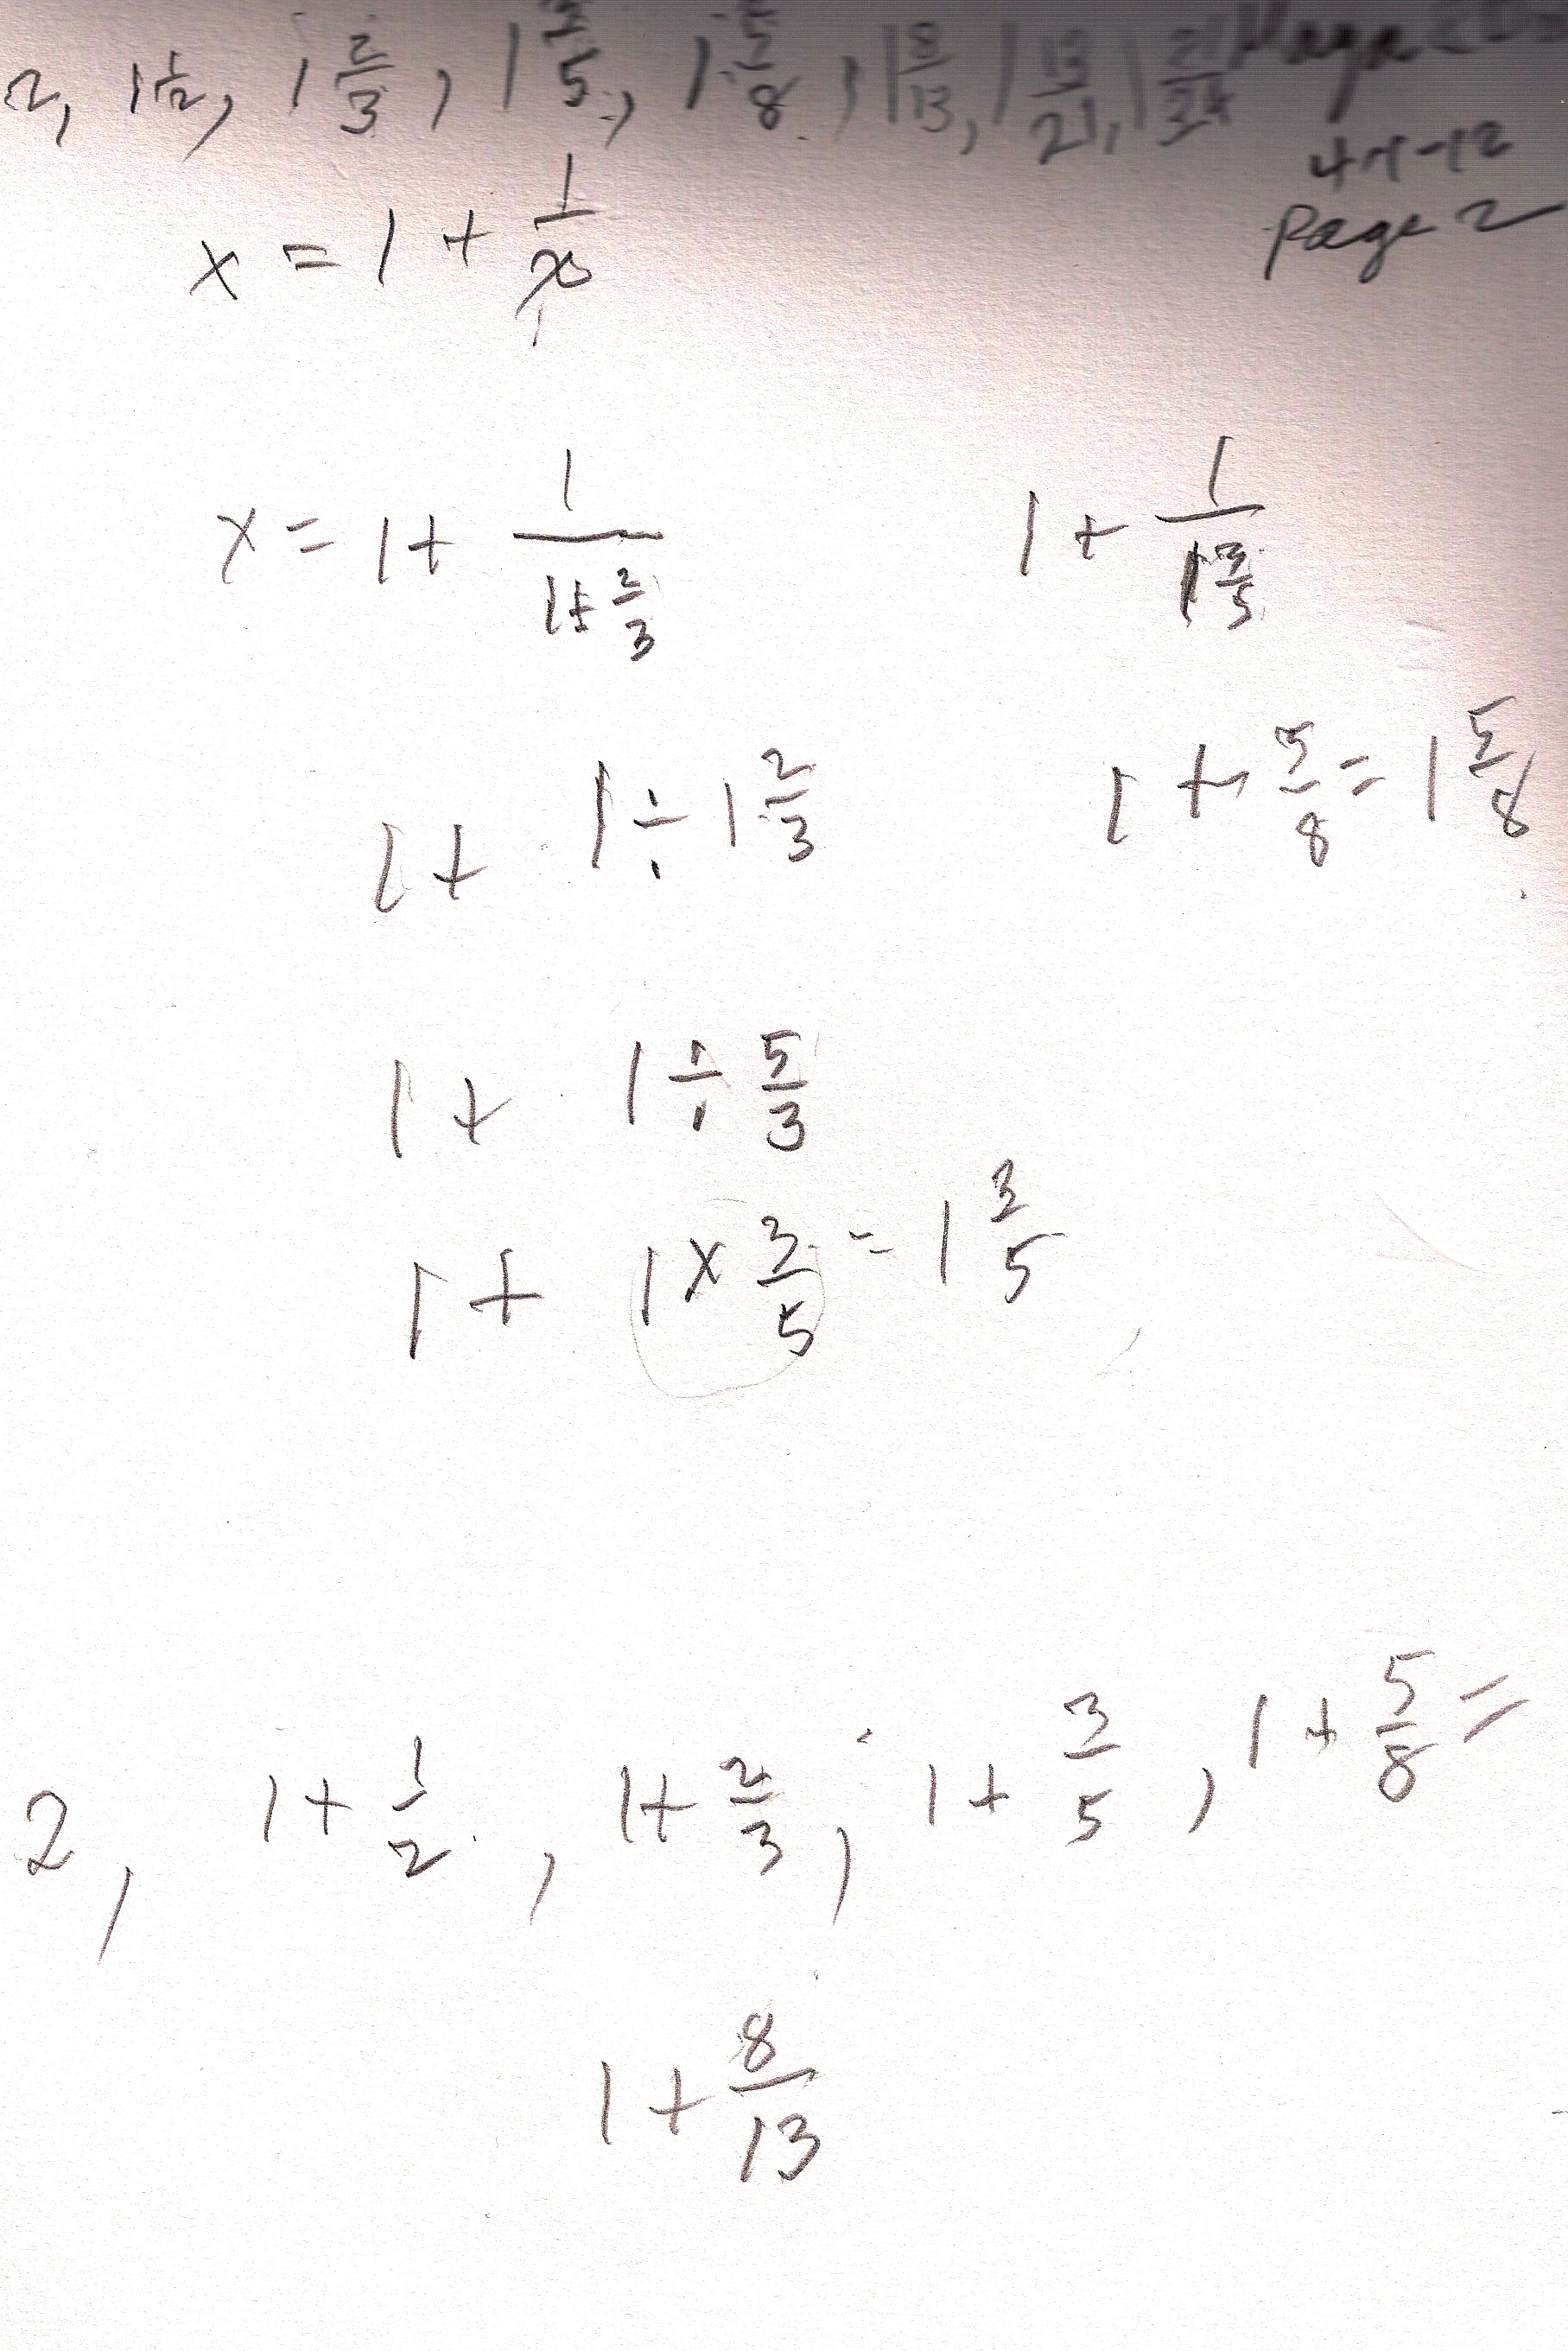 2, 1 1/2, 1 2/3, 1 3/5, 1 5/8, 1 8/13, 1 13/21, 1 21/34
4-1-12
Page 2
x = 1 + 1/x
x = 1 + 1/(1+2/3)
1 + 1/(1 3/5)
1 + 1 ÷ 1 2/3
1 + 5/8 = 1 5/8
1 + 1 ÷ 5/3
1 + 1 × 3/5 = 1 3/5
2, 1 + 1/2, 1 + 2/3, 1 + 3/5, 1 + 5/8 =
1 + 8/13